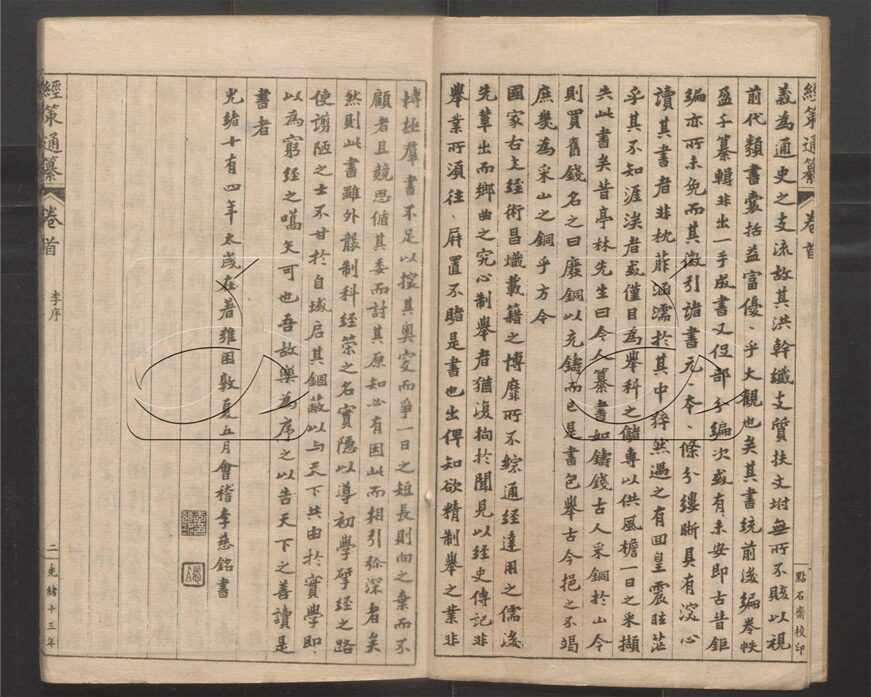 經策通纂 卷首 點石齋校印
義為通史之支流故其洪幹纖支質扶文坿無所不賅以視
前代類書囊括益富優〻乎大觀也矣其書統前後編卷帙
盈千纂輯非出一手成書又促部分編次或有未安即古昔鉅
編亦所未免而其徵引諸書元〻本〻條分縷晰具有深心
讀其書者非枕葄涵濡於其中猝然遇之有回皇震眩茫
乎其不知涯涘者或僅目為舉科之儲專以供風檐一日之采擷
失此書矣昔亭林先生曰今人纂書如鑄錢古人采銅於山今
則買舊錢名之曰廢銅以充鑄而已是書包舉古今挹之不竭
庶幾為采山之銅乎方今
國家右文經術昌熾載籍之博靡所不綜通經達用之儒後
先輩出而鄉曲之究心制舉者猶復拘於聞見以經史傳記非
舉業所須往〻屏置不睹是書也出俾知欲精制舉之業非
博極羣書不足以探其奧窔而爭一日之短長則向之棄而不
顧者且競思循其委而討其原知必有因此而相引弥深者矣
然則此書雖外襲制科經策之名實隱以導初學揅經之路
使謭陋之士不甘於自域启其錮蔽以与天下共由於實學即
以為窮經之嚆矢可也吾故樂為序之以告天下之善讀是
書者
光緒十有四年太歲在著雍困敦夏五月會稽李慈銘書
經策通纂 卷首 李序 二 光緒十三年